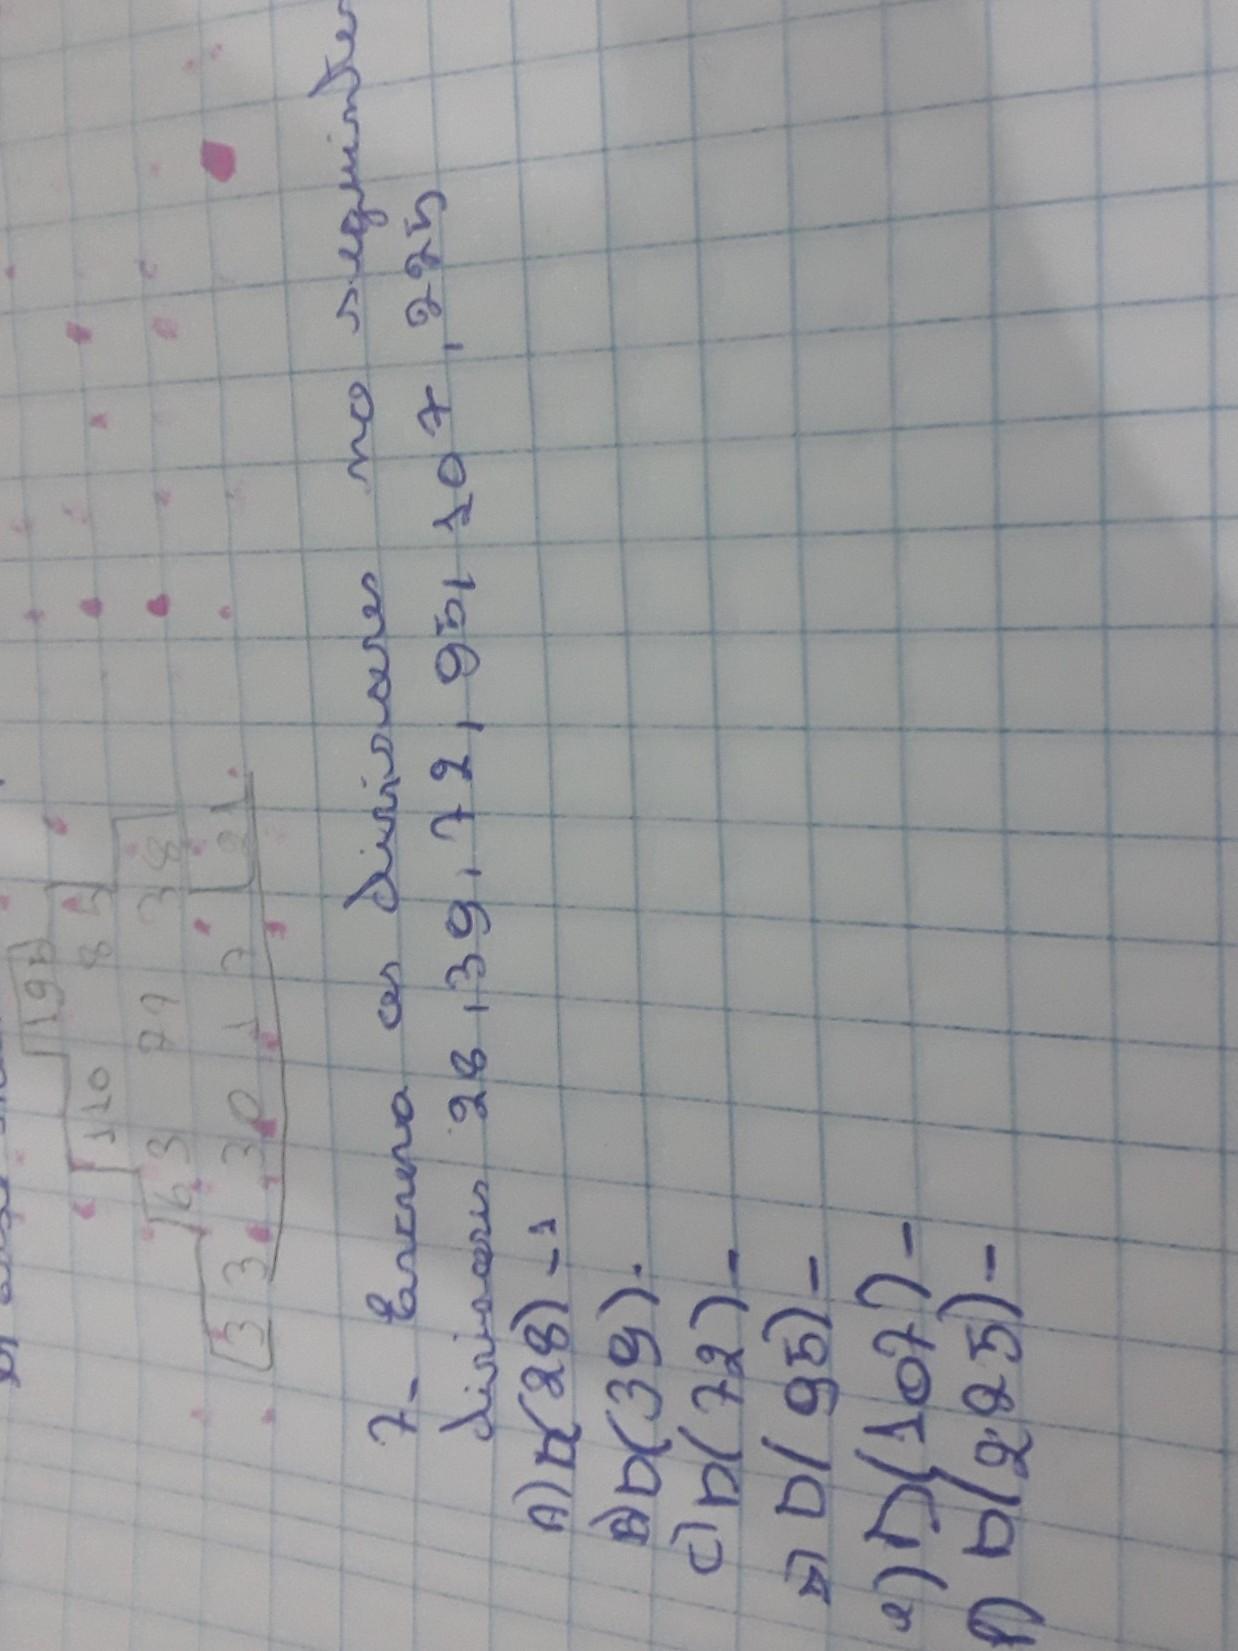 195
110 85
63 79 38
33 30 17 21
7- Encontra os divisores no seguinte
divisores 28, 39, 72, 95, 107, 225
A) D(28) - 1
B) D(39).
C) D(72) -
D) D(95) -
e) D(107) -
f) D(225) -